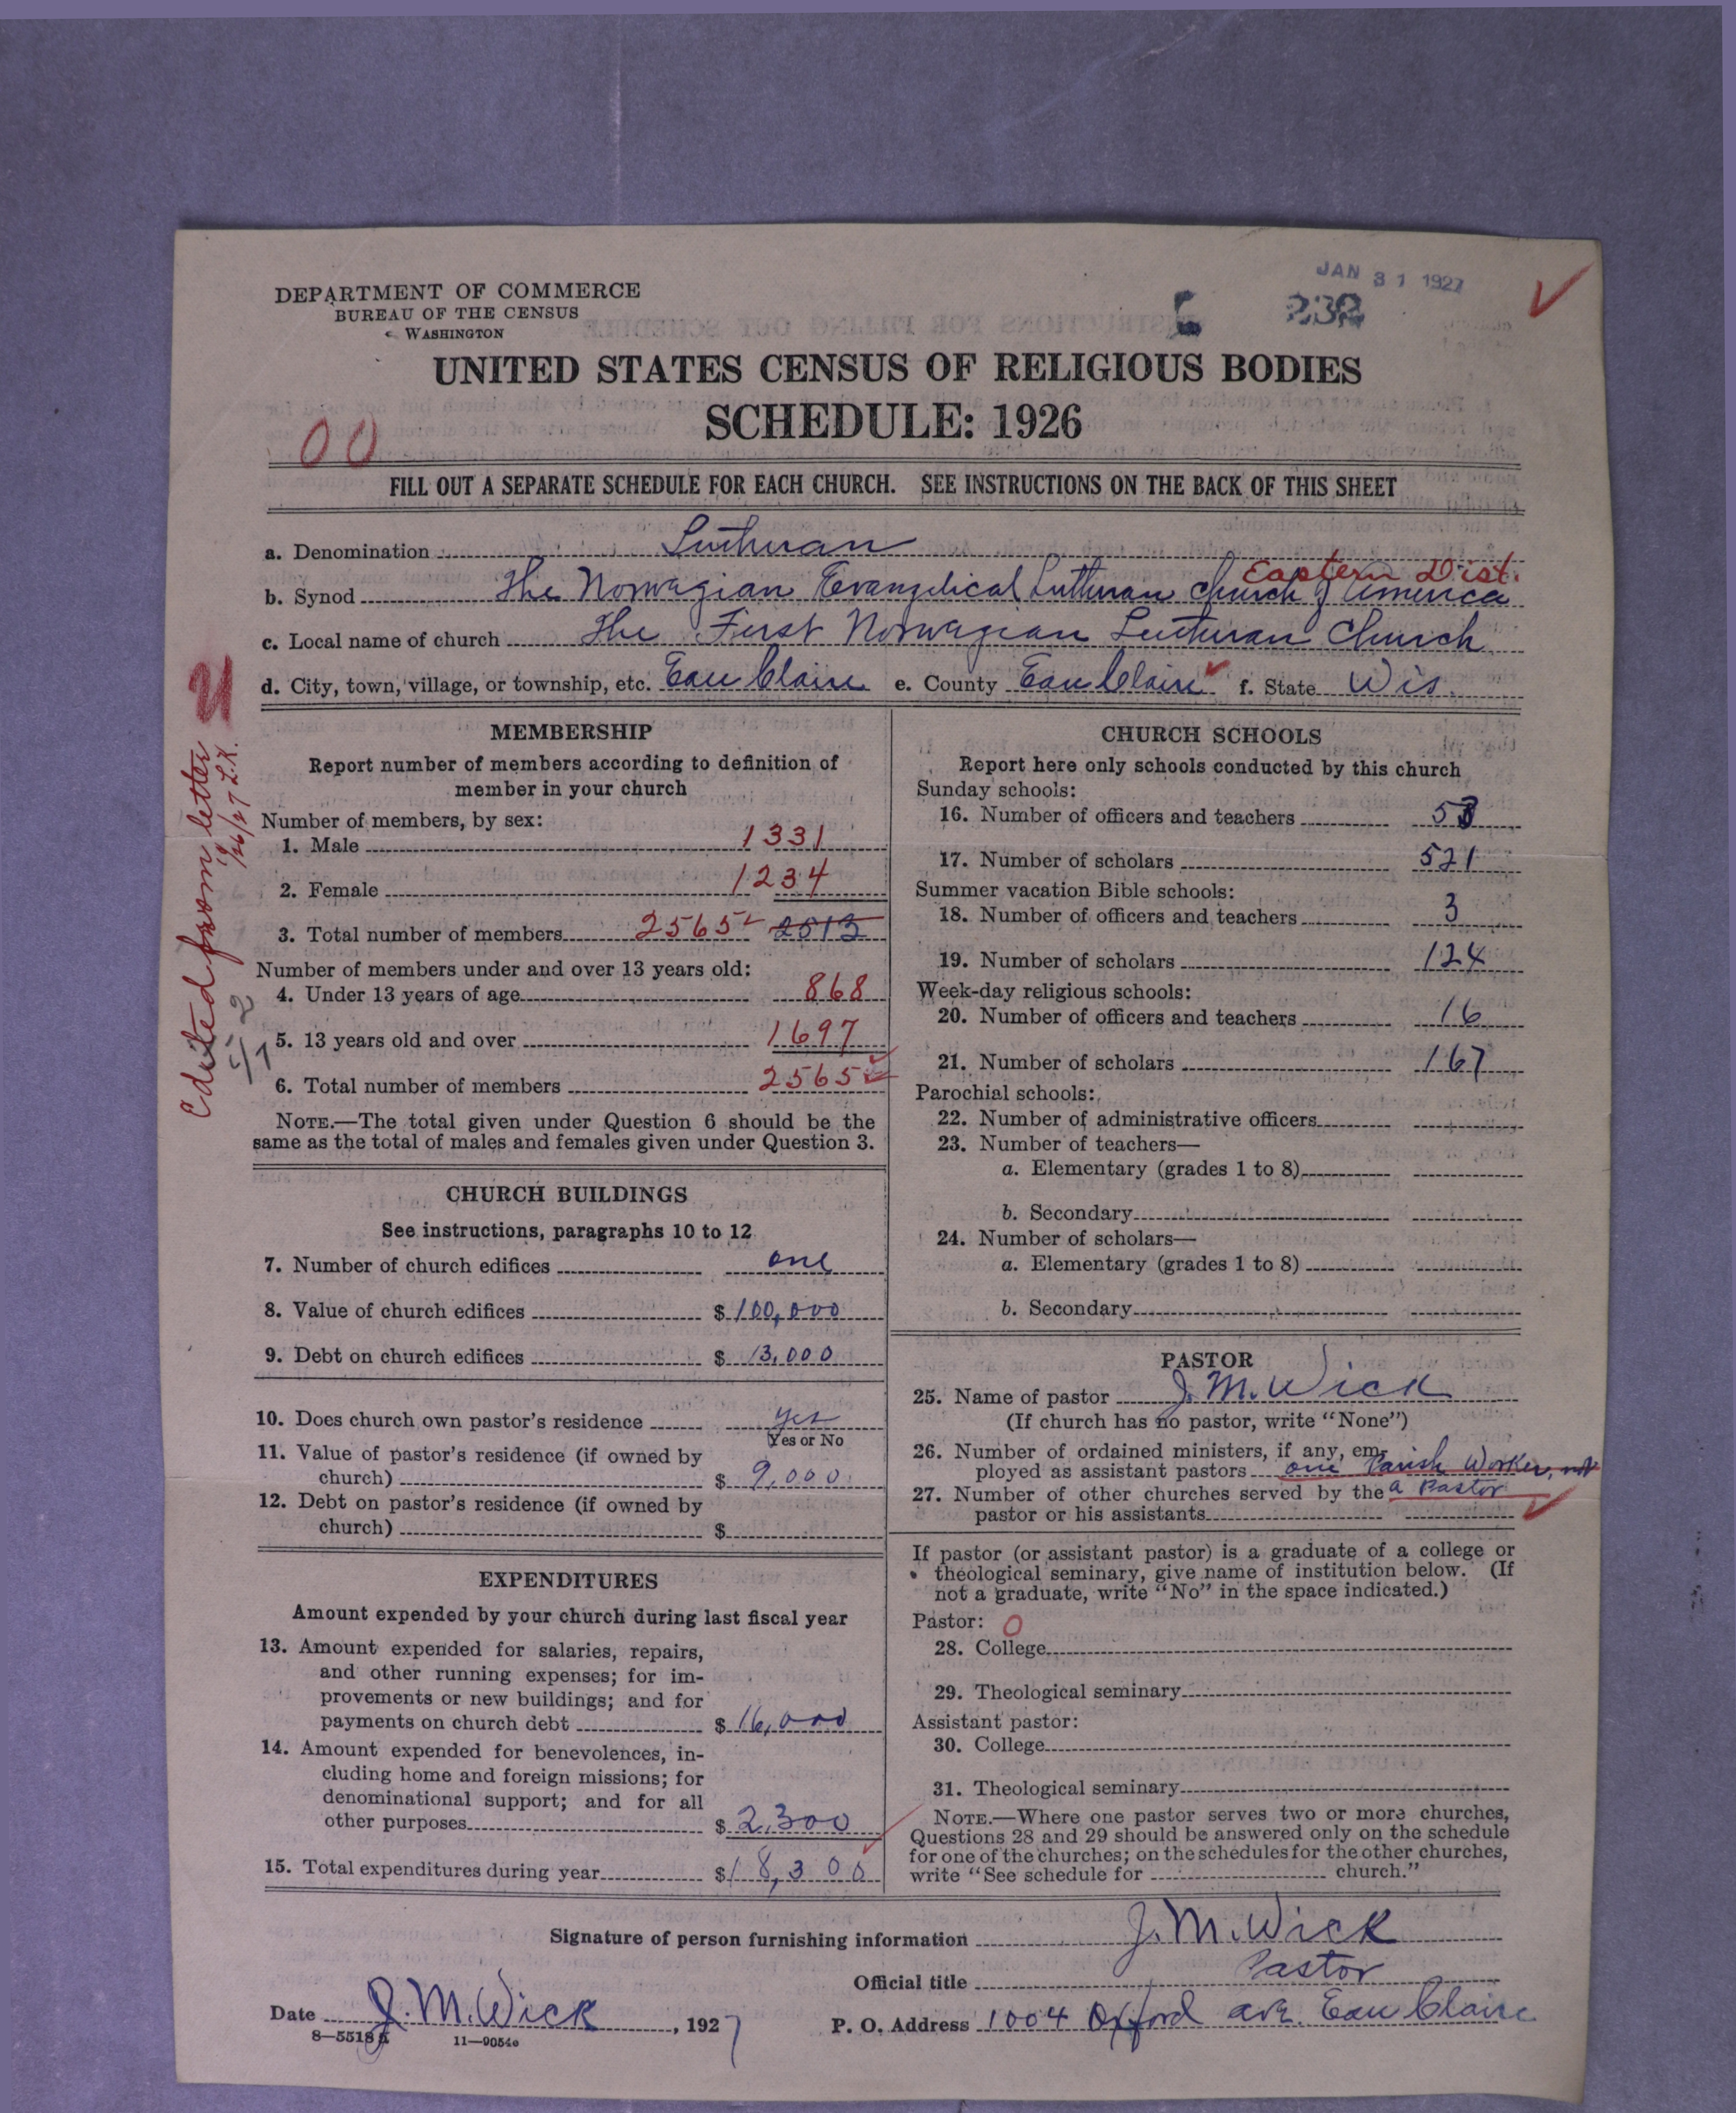 JAN 31 1927
232
DEPARTMENT OF COMMERCE
BUREAU OF THE CENSUS
WASHINGTON
UNITED STATES CENSUS OF RELIGIOUS BODIES
SCHEDULE: 1926
00
FILL OUT A SEPARATE SCHEDULE FOR EACH CHURCH. SEE INSTRUCTIONS ON THE BACK OF THIS SHEET
a. Denomination Lutheran
Eastern Dist.
b. Synod The Norwegian Evangelical Lutheran Church of America
c. Local name of church The First Norwegian Lutheran Church
d. City, town, village, or township, etc. Eau Claire e. County Eau Claire f. State Wis.
Edited from letter
MEMBERSHIP
Report number of members according to definition of
member in your church
Number of members, by sex:
1. Male 1331
2. Female 1234
3. Total number of members 2565 2513
Number of members under and over 13 years old:
4. Under 13 years of age 868
5. 13 years old and over 1697
6. Total number of members 2565
NOTE.—The total given under Question 6 should be the
same as the total of males and females given under Question 3.
CHURCH BUILDINGS
See instructions, paragraphs 10 to 12
7. Number of church edifices one
8. Value of church edifices $ 100,000
9. Debt on church edifices $ 13,000
10. Does church own pastor's residence yes
Yes or No
11. Value of pastor's residence (if owned by
church) $ 9,000
12. Debt on pastor's residence (if owned by
church) $
EXPENDITURES
Amount expended by your church during last fiscal year
13. Amount expended for salaries, repairs,
and other running expenses; for im-
provements or new buildings; and for
payments on church debt $ 16,000
14. Amount expended for benevolences, in-
cluding home and foreign missions; for
denominational support; and for all
other purposes $ 2,300
15. Total expenditures during year $ 18,300
CHURCH SCHOOLS
Report here only schools conducted by this church
Sunday schools:
16. Number of officers and teachers 53
17. Number of scholars 521
Summer vacation Bible schools:
18. Number of officers and teachers 3
19. Number of scholars 124
Week-day religious schools:
20. Number of officers and teachers 16
21. Number of scholars 167
Parochial schools:
22. Number of administrative officers
23. Number of teachers—
a. Elementary (grades 1 to 8)
b. Secondary
24. Number of scholars—
a. Elementary (grades 1 to 8)
b. Secondary
PASTOR
25. Name of pastor J. M. Wick
(If church has no pastor, write "None")
26. Number of ordained ministers, if any, em-
ployed as assistant pastors one Parish Worker, not
27. Number of other churches served by the a Pastor
pastor or his assistants
If pastor (or assistant pastor) is a graduate of a college or
theological seminary, give name of institution below. (If
not a graduate, write "No" in the space indicated.)
Pastor: 0
28. College
29. Theological seminary
Assistant pastor:
30. College
31. Theological seminary
NOTE.—Where one pastor serves two or more churches,
Questions 28 and 29 should be answered only on the schedule
for one of the churches; on the schedules for the other churches,
write "See schedule for church."
Signature of person furnishing information J. M. Wick
Official title Pastor
Date J. M. Wick, 1927
P. O. Address 1004 Oxford ave. Eau Claire
11—9054e